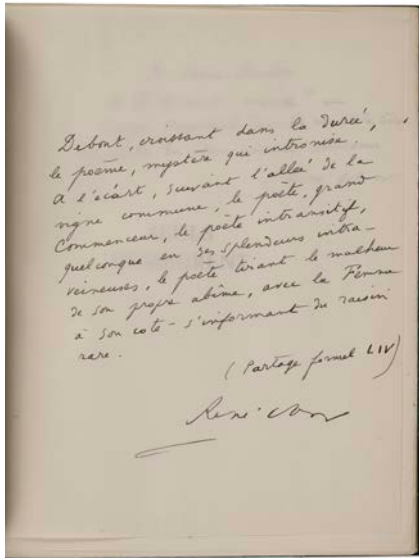 Debout, croissant dans la durée,
le poème, mystère qui intronise.
A l'écart, suivant l'allée de la
vigne commune, le poète, grand
Commenceur, le poète intransitif,
quelconque en ses splendeurs intra-
veineuses, le poète tirant le malheur
de son propre abîme, avec la Femme
à son côté - s'informant du raisin
rare.
(Partage formel LIV)
René Char